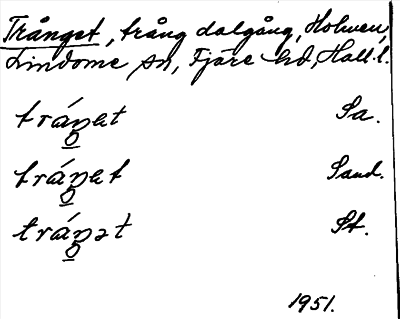 Trånget, trång dalgång, Holmen,
Lindome sn, Fjäre hd, Hall. l.
tráŋət Sa.
tráŋət Sand.
tráŋət St.
1951.